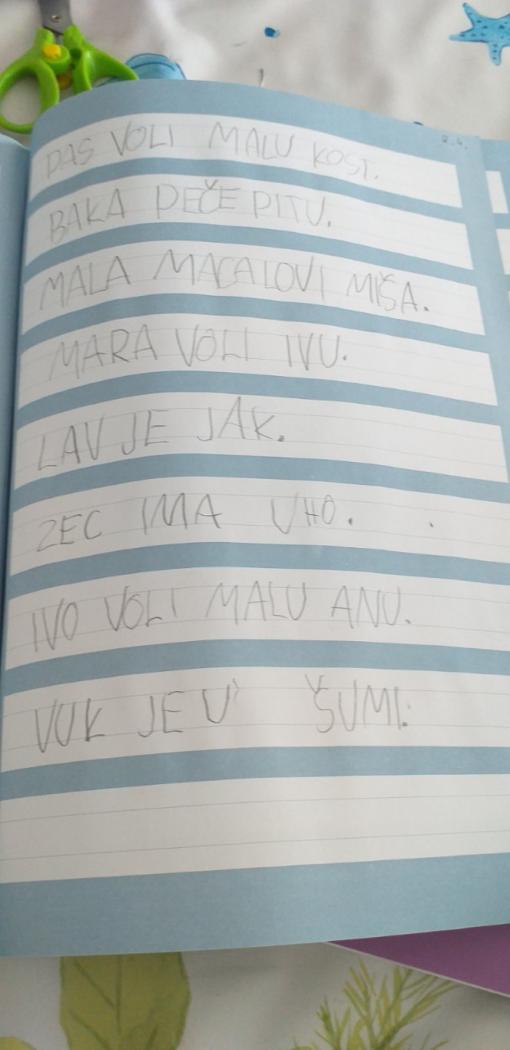 PAS VOLI MALU KOST.
BAKA PEČE PITU.
MALA MACA LOVI MIŠA.
MARA VOLI IVU.
LAV JE JAK.
ZEC IMA UHO.
IVO VOLI MALU ANU.
VUK JE U ŠUMI.